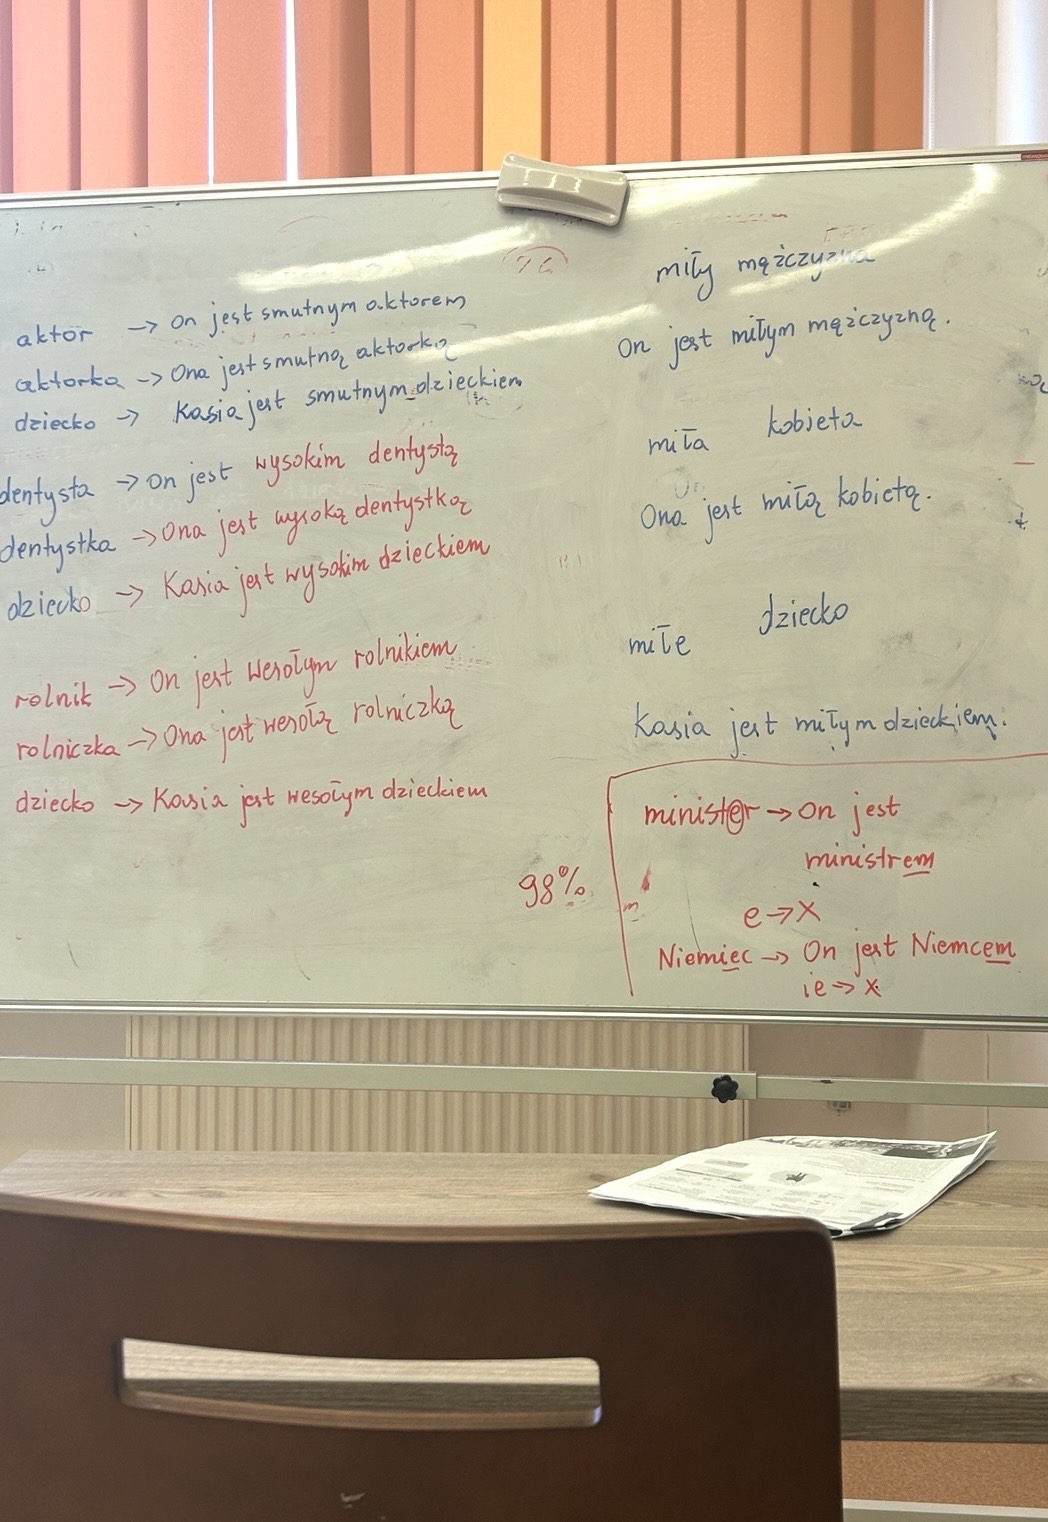 aktor → On jest smutnym aktorem
aktorka → Ona jest smutną aktorką
dziecko → Kasia jest smutnym dzieckiem
dentysta → On jest wysokim dentystą
dentystka → Ona jest wysoką dentystką
dziecko → Kasia jest wysokim dzieckiem
rolnik → On jest wesołym rolnikiem
rolniczka → Ona jest wesołą rolniczką
dziecko → Kasia jest wesołym dzieckiem
98%
miły mężczyzna
On jest miłym mężczyzną.
miła kobieta
Ona jest miłą kobietą.
miłe dziecko
Kasia jest miłym dzieckiem.
minister → On jest
ministrem
e → X
Niemiec → On jest Niemcem
ie → X